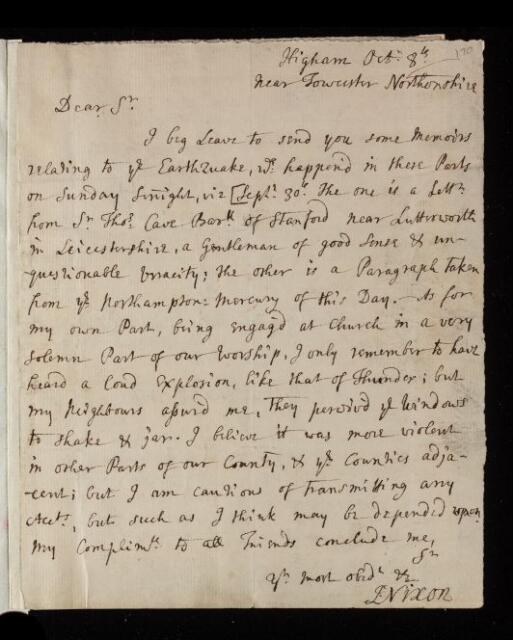 Higham Octr. 8th. 170
near Towcester Northonshire
Dear Sr.
I beg Leave to send you some Memoirs
relating to ye Earthquake, wch. happen'd in these Parts
on Sunday Sevnight, viz [Septr. 30th. The one is a Lettr.
from Sr. Thos. Cave Bart. of Stanford near Lutterworth
in Leicestershire, a Gentleman of good Sense & un-
questionable Veracity; the other is a Paragraph taken
from ye Northampton=Mercury of this Day. As for
my own Part, being engag'd at Church in a very
solemn Part of our Worship, I only remember to have
heard a loud Explosion, like that of Thunder; but
my Neighbours assur'd me, They perceivd ye Windows
to shake & jar. I believe it was more violent
in other Parts of our County, & ye Counties adja-
cent; but I am cautious of transmitting any
Acctts. but such as I think may be depended upon
My Complimts. to all Friends conclude me,
Sr
Yr. most obedt. &c
J Nixon